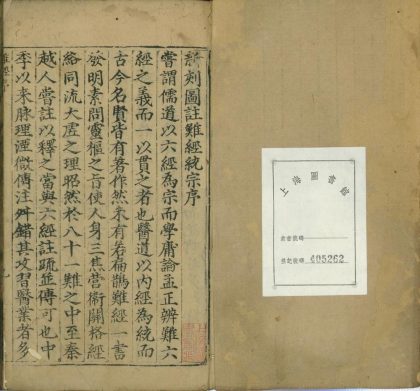 續刻圖註難經統宗序
嘗謂儒道以六經為宗而學庸論孟正辨難六
經之義而一以貫之者也醫道以內經為統而
古今名賢皆有著作然未有若扁鵲難經一書
發明素問靈樞之旨使人身三焦營衛關格經
絡同流大虛之理昭然於八十一難之中至秦
越人嘗註以釋之當與六經註疏並傳可也中
季以來脉理湮微傳注舛錯其攻習醫業者多
上海圖書館
登記號碼 405262